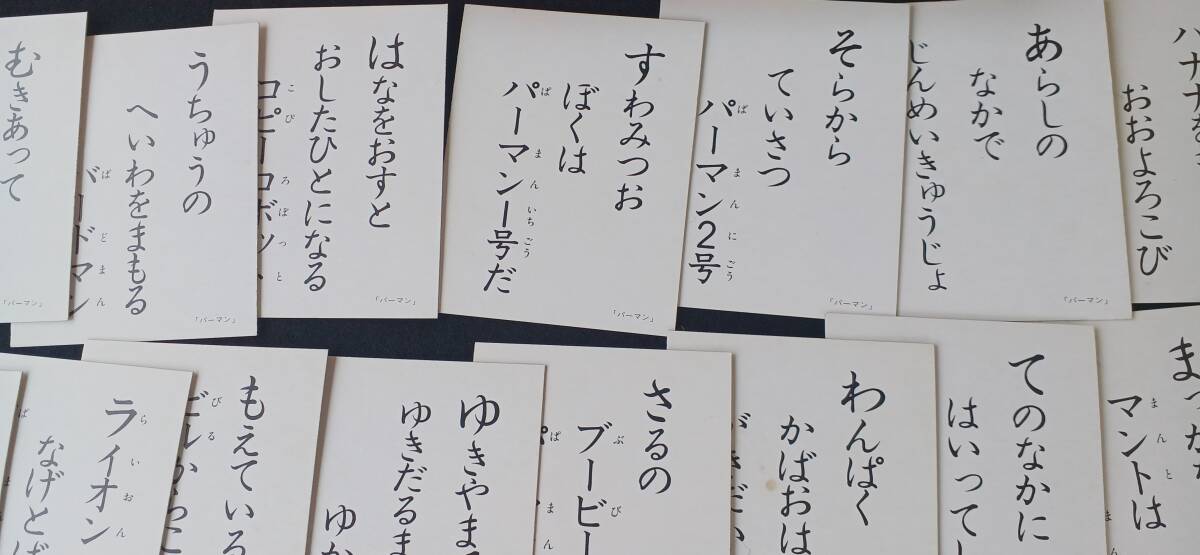 あらしの
なかで
じんめいきゅうじょ
「パーマン」
おおよろこび
そらから
ていさつ
パーマン2号
ぱ まん にごう
「パーマン」
すわみつお
ぼくは
パーマン1号だ
ぱ まん いちごう
「パーマン」
はなをおすと
おしたひとになる
コピーロボット
こぴ ろぼっと
「パーマン」
うちゅうの
へいわをまもる
バードマン
ば どまん
「パーマン」
むきあって
「パーマン」
マントは
まんと
てのなかに
はいってし
わんぱく
かばおは
さるの
ブービー
ぶ び
ゆきやま
ゆきだるま
ゆか
もえている
びる
ライオン
らいおん
なげとば